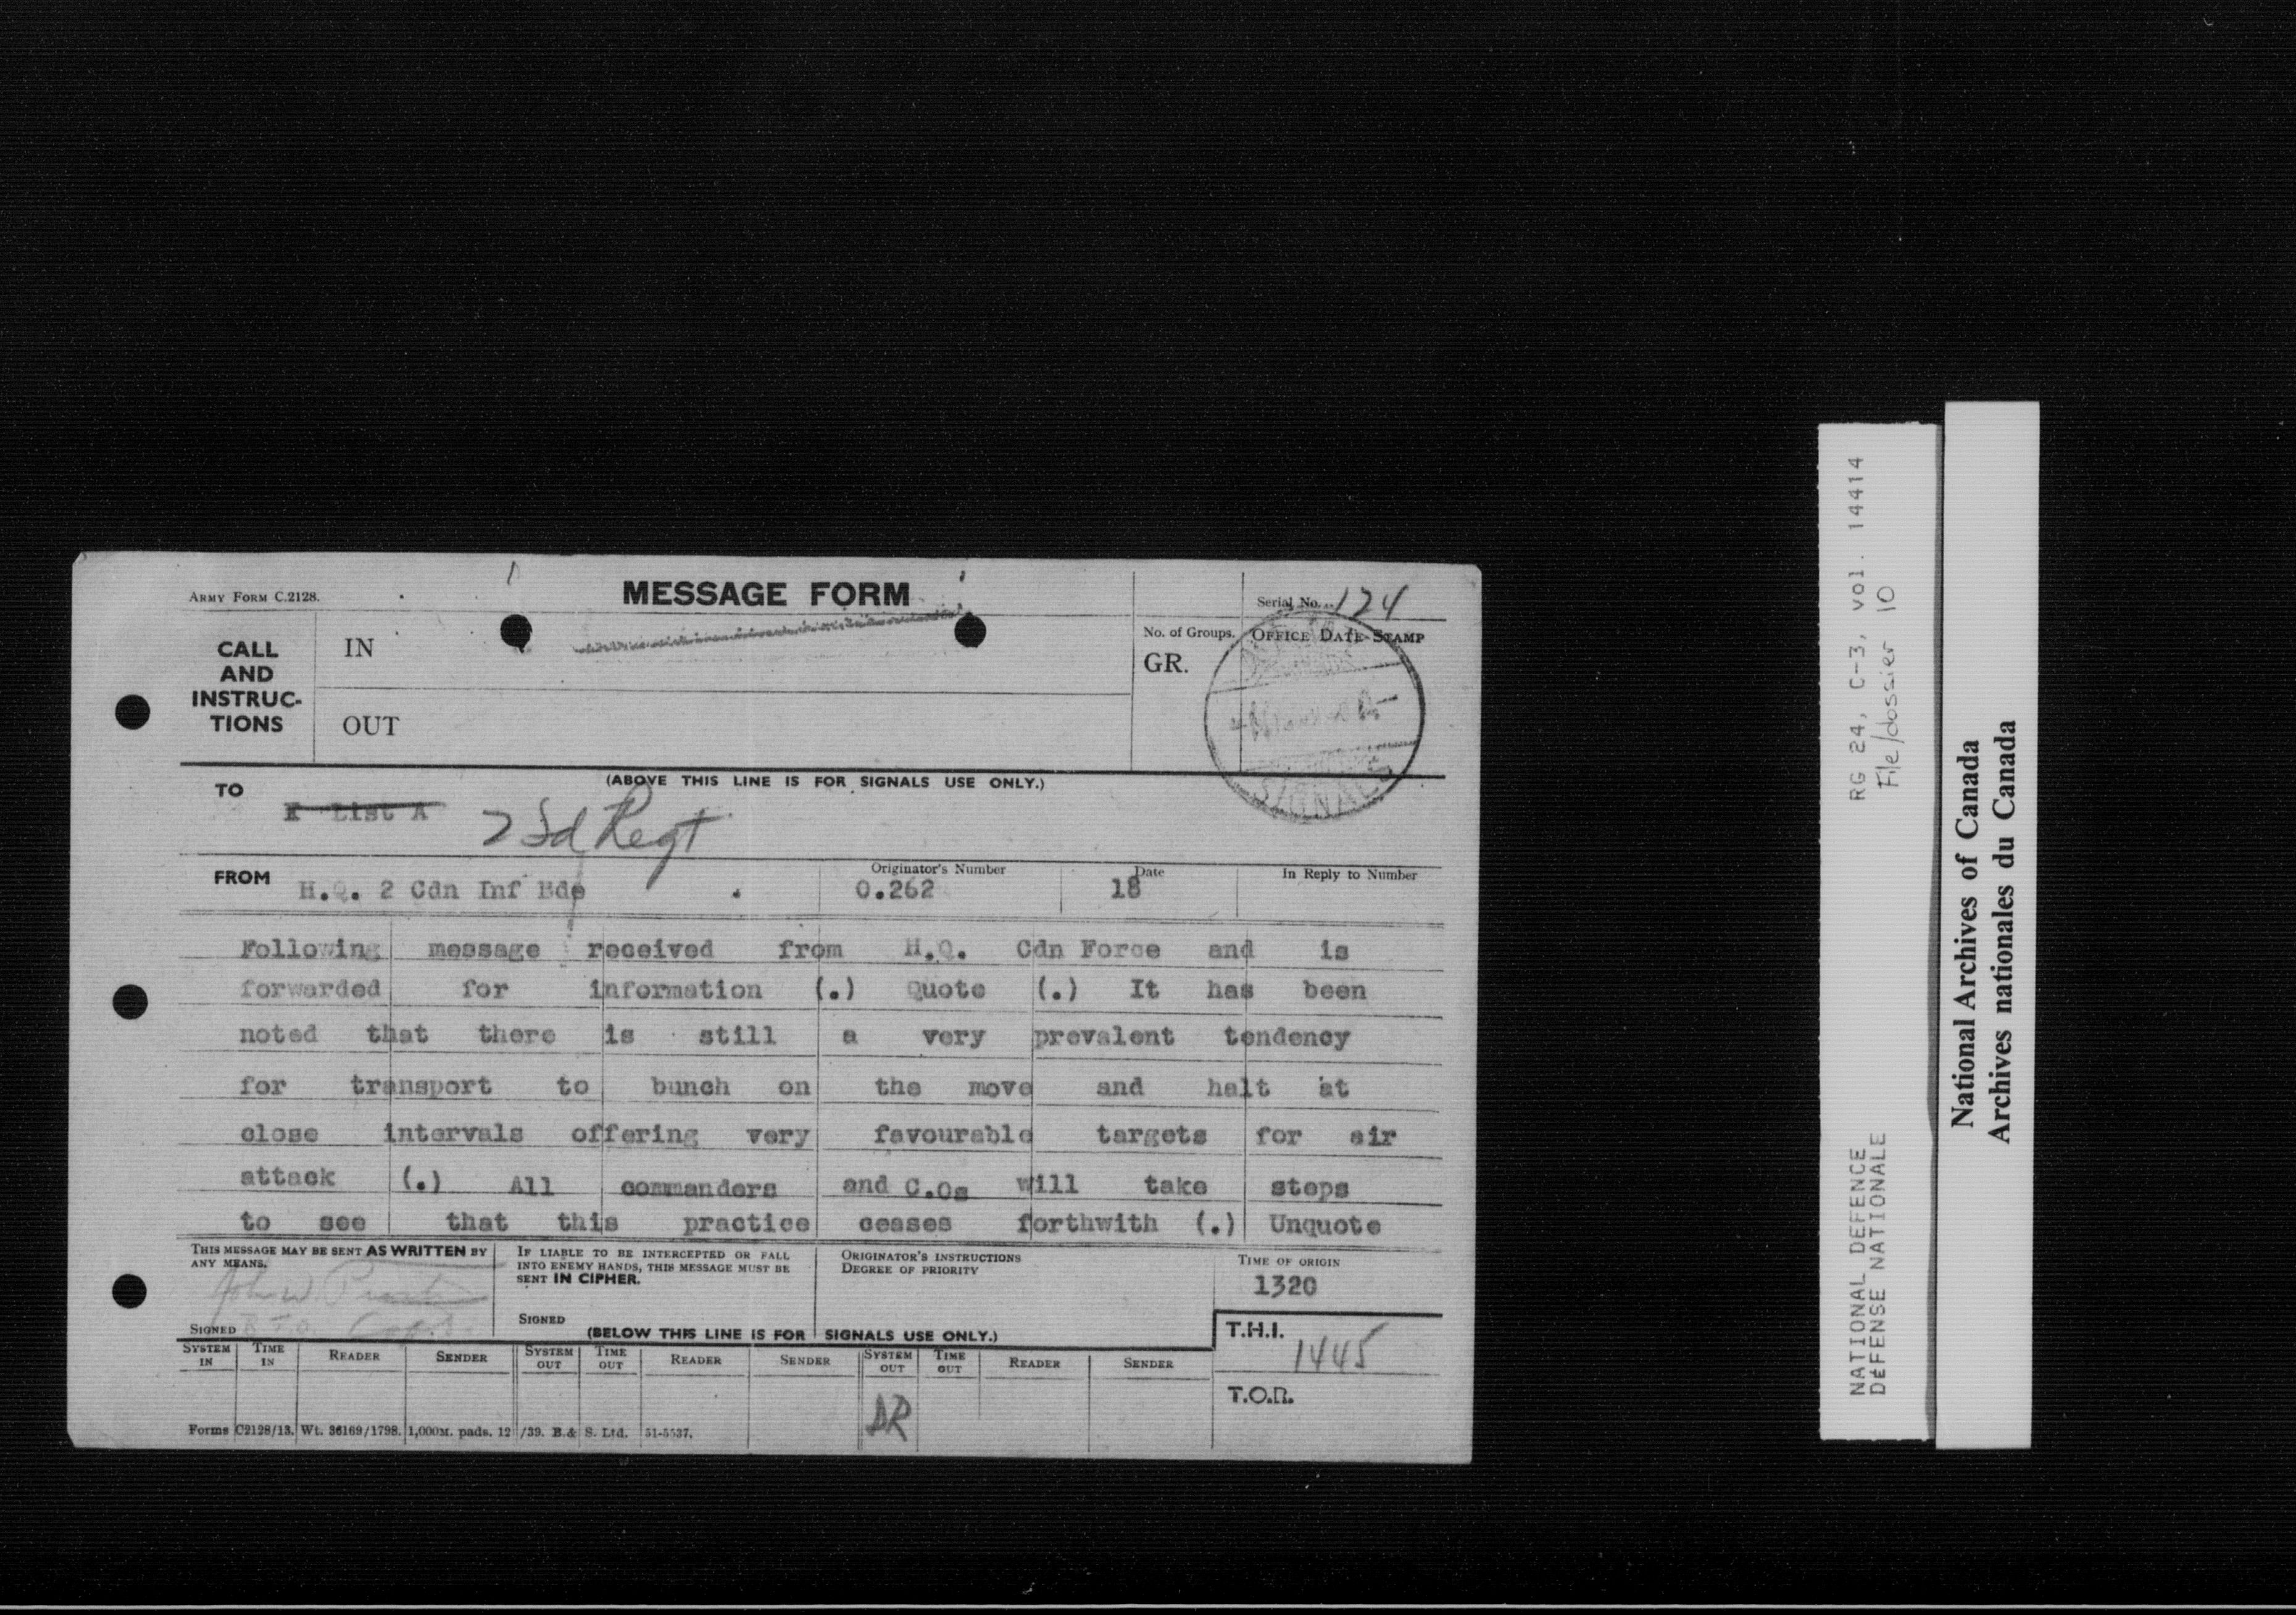 ARMY FORM C.2128.
MESSAGE FORM
Serial No. 124
CALL AND INSTRUC-TIONS
IN
OUT
No. of Groups.
GR.
OFFICE DATE-STAMP
SIGNALS
(ABOVE THIS LINE IS FOR SIGNALS USE ONLY.)
TO
List A
2 Fd Regt
FROM H.Q. 2 Cdn Inf Bde
Originator's Number
O.262
Date
18
In Reply to Number
Following message received from H.Q. Cdn Force and is
forwarded for information (.) Quote (.) It has been
noted that there is still a very prevalent tendency
for transport to bunch on the move and halt at
close intervals offering very favourable targets for air
attack (.) All commanders and C.Os will take steps
to see that this practice ceases forthwith (.) Unquote
THIS MESSAGE MAY BE SENT AS WRITTEN BY
ANY MEANS.
John W.
Capt.
SIGNED
IF LIABLE TO BE INTERCEPTED OR FALL
INTO ENEMY HANDS, THIS MESSAGE MUST BE
SENT IN CIPHER.
SIGNED
ORIGINATOR'S INSTRUCTIONS
DEGREE OF PRIORITY
TIME OF ORIGIN
1320
(BELOW THIS LINE IS FOR SIGNALS USE ONLY.)
T.H.I.
1445
T.O.R.
SYSTEM IN TIME IN READER SENDER SYSTEM OUT TIME OUT READER SENDER SYSTEM OUT TIME OUT READER SENDER
DR
Forms C2128/13. Wt. 36169/1798. 1,000M. pads. 12/39. B.& S. Ltd. 51-5537.
RG 24, C-3, vol. 14414
File/dossier 10
NATIONAL DEFENCE
DÉFENSE NATIONALE
National Archives of Canada
Archives nationales du Canada